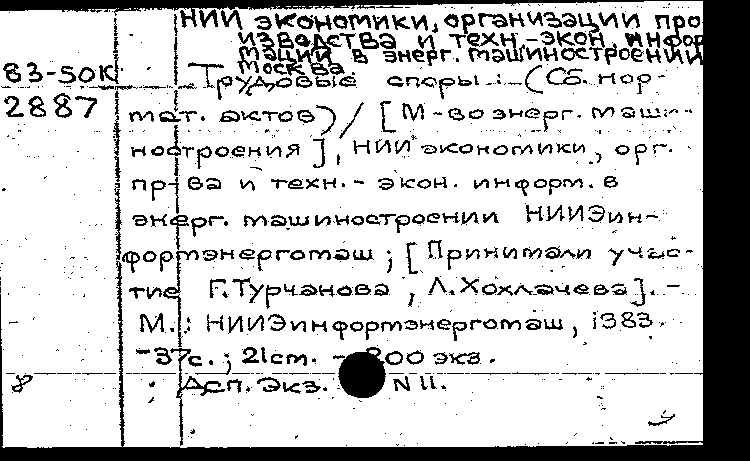 НИИ экономики, организации про
изводства и техн.-экон. инфор
мации в энерг. машиностроении
Москва
83-50К
2887
Трудовые споры: (Сб. нор-
мат. актов) / [М-во энерг. маши-
ностроения], НИИ экономики, орг.
пр-ва и техн.-экон. информ. в
энерг. машиностроении НИИЭин-
формэнергомаш; [Принимали учас-
тие Г. Турчанова, Л. Хохлачева]. -
М.: НИИЭинформэнергомаш, 1983.
-37с.; 21см. - 200 экз.
Экз. N 11.